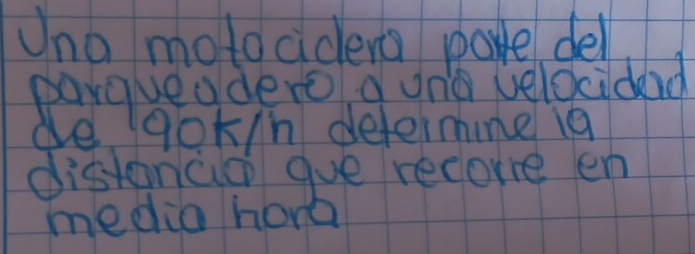 Una motociclera parte del
parqueadero a una velocidad
de 90k/h determine la
distancia que recorre en
media hora